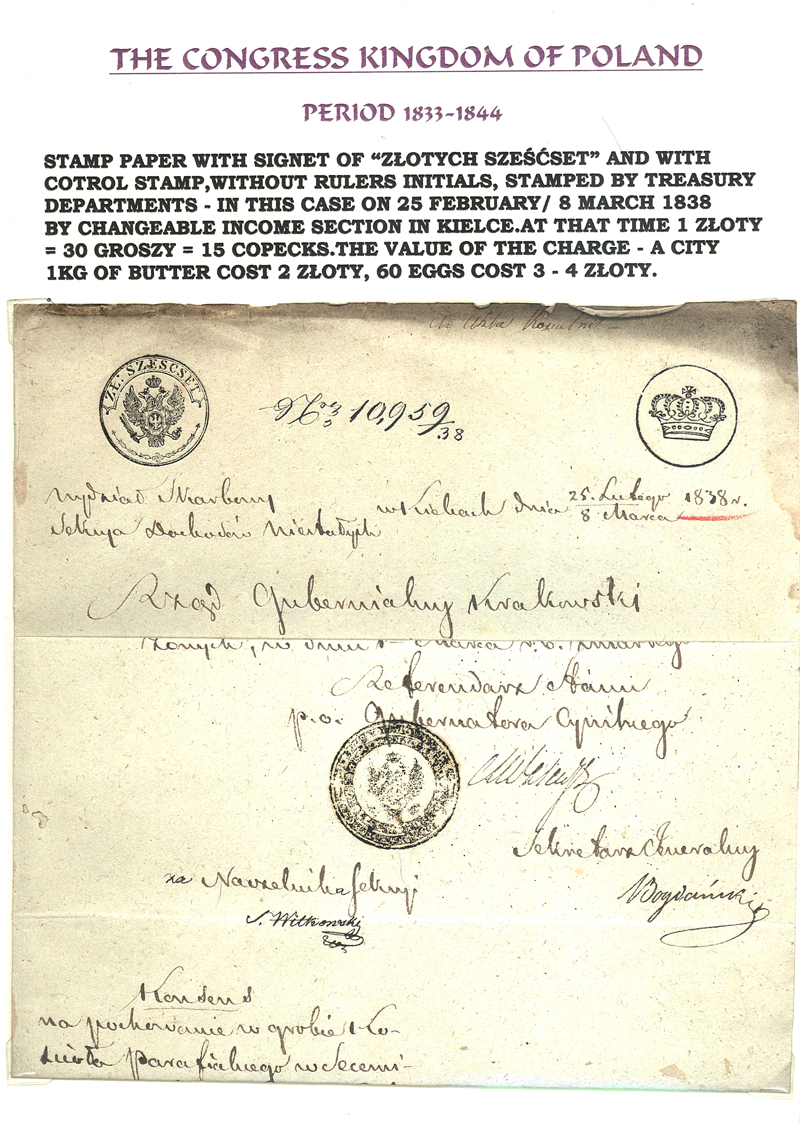 THE CONGRESS KINGDOM OF POLAND
PERIOD 1833-1844
STAMP PAPER WITH SIGNET OF “ZŁOTYCH SZEŚĆSET” AND WITH
COTROL STAMP,WITHOUT RULERS INITIALS, STAMPED BY TREASURY
DEPARTMENTS - IN THIS CASE ON 25 FEBRUARY/ 8 MARCH 1838
BY CHANGEABLE INCOME SECTION IN KIELCE.AT THAT TIME 1 ZŁOTY
= 30 GROSZY = 15 COPECKS.THE VALUE OF THE CHARGE - A CITY
1KG OF BUTTER COST 2 ZŁOTY, 60 EGGS COST 3 - 4 ZŁOTY.
ZŁ: SZESCSET
10,959/38
Wydział Skarbowy
Sekcya Dochodów Niestałych
w Kielcach dnia 25. Lutego / 8 Marca 1838 r.
Rząd Gubernialny Krakowski
Referendarz Stanu
p.o. Gubernatora Cywilnego
Sekretarz Jeneralny
za Naczelnika Sekcyi
S. Witkowski
Konsens
na pochowanie w grobie Ko-
ścioła Parafialnego w Secemi-